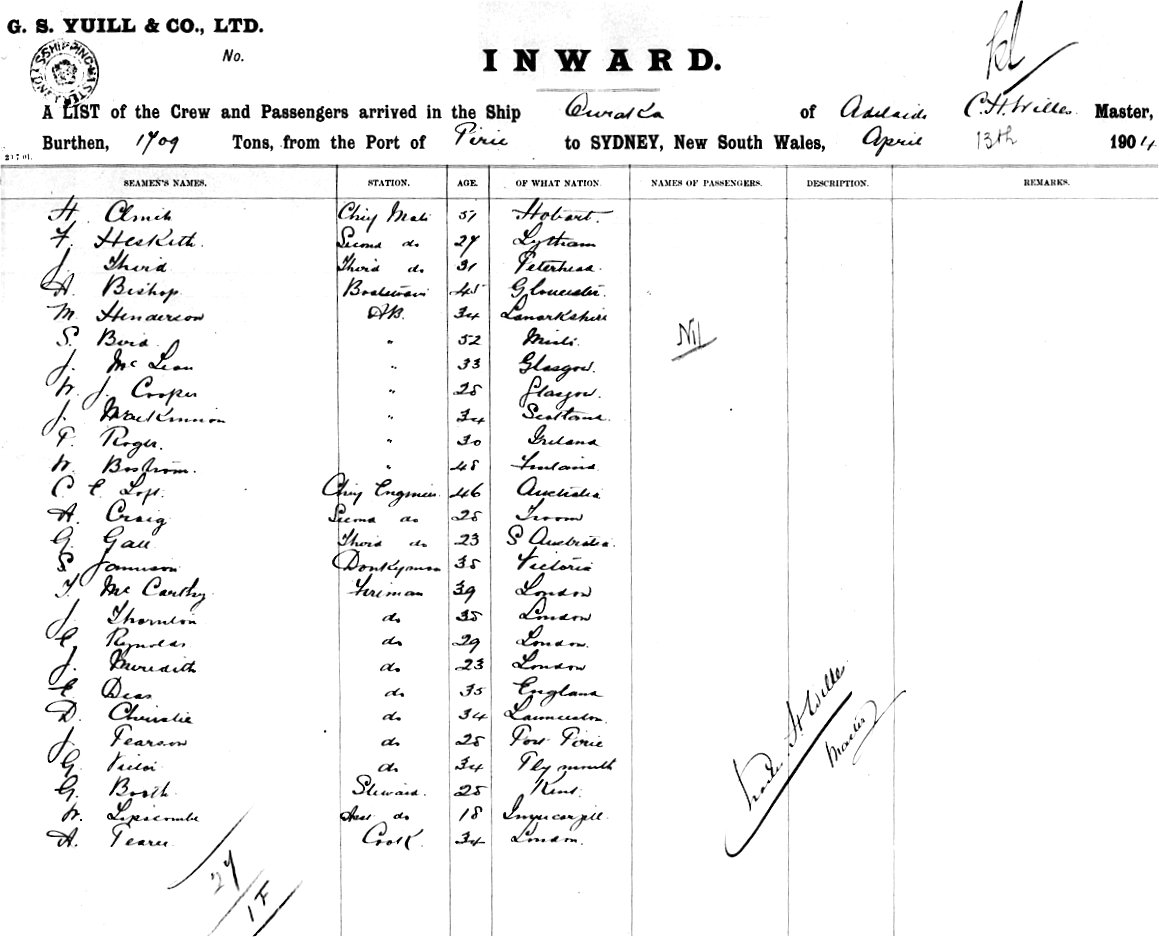 G. S. YUILL & CO., LTD.
No.
INWARD.
A LIST of the Crew and Passengers arrived in the Ship of Adelaide C. H. Wills Master,
Burthen, 1709 Tons, from the Port of Pirie to SYDNEY, New South Wales, April 13th 1904
SEAMEN'S NAMES. STATION. AGE. OF WHAT NATION. NAMES OF PASSENGERS. DESCRIPTION. REMARKS.
H. Chief Mate 51 Hobart.
F. Hesketh. Second do 27 Lytham
J. Third do 31 Peterhead.
A. Bishop Boatswain 45 Gloucester.
M. Henderson AB. 34 Lanarkshire
S. " 52
Nil
J. McLean " 33 Glasgow.
W. J. Cooper " 28 Glasgow.
J. MacKinnon " 34 Scotland.
P. Roger. " 30 Ireland
W. Bostrom. " 48 Finland.
C. E. Chief Engineer. 46 Australia
A. Craig Second do 28 Troon
G. Gall Third do 23 S Australia.
S. Jamieson Donkyman 38 Victoria
T. McCarthy Fireman 39 London
J. Thornton do 35 London
C. Reynolds do 29 London.
J. Meredith do 23 London
E. Deas do 35 England
D. Christie do 34 Launceston.
J. Pearson do 28 Port Pirie
G. do 34 Plymouth
G. Booth. Steward. 28 Kent.
W. Lipscombe Asst do 18 Invercargill
A. Cook. 34 London.
27
1 F
H Wills
Master